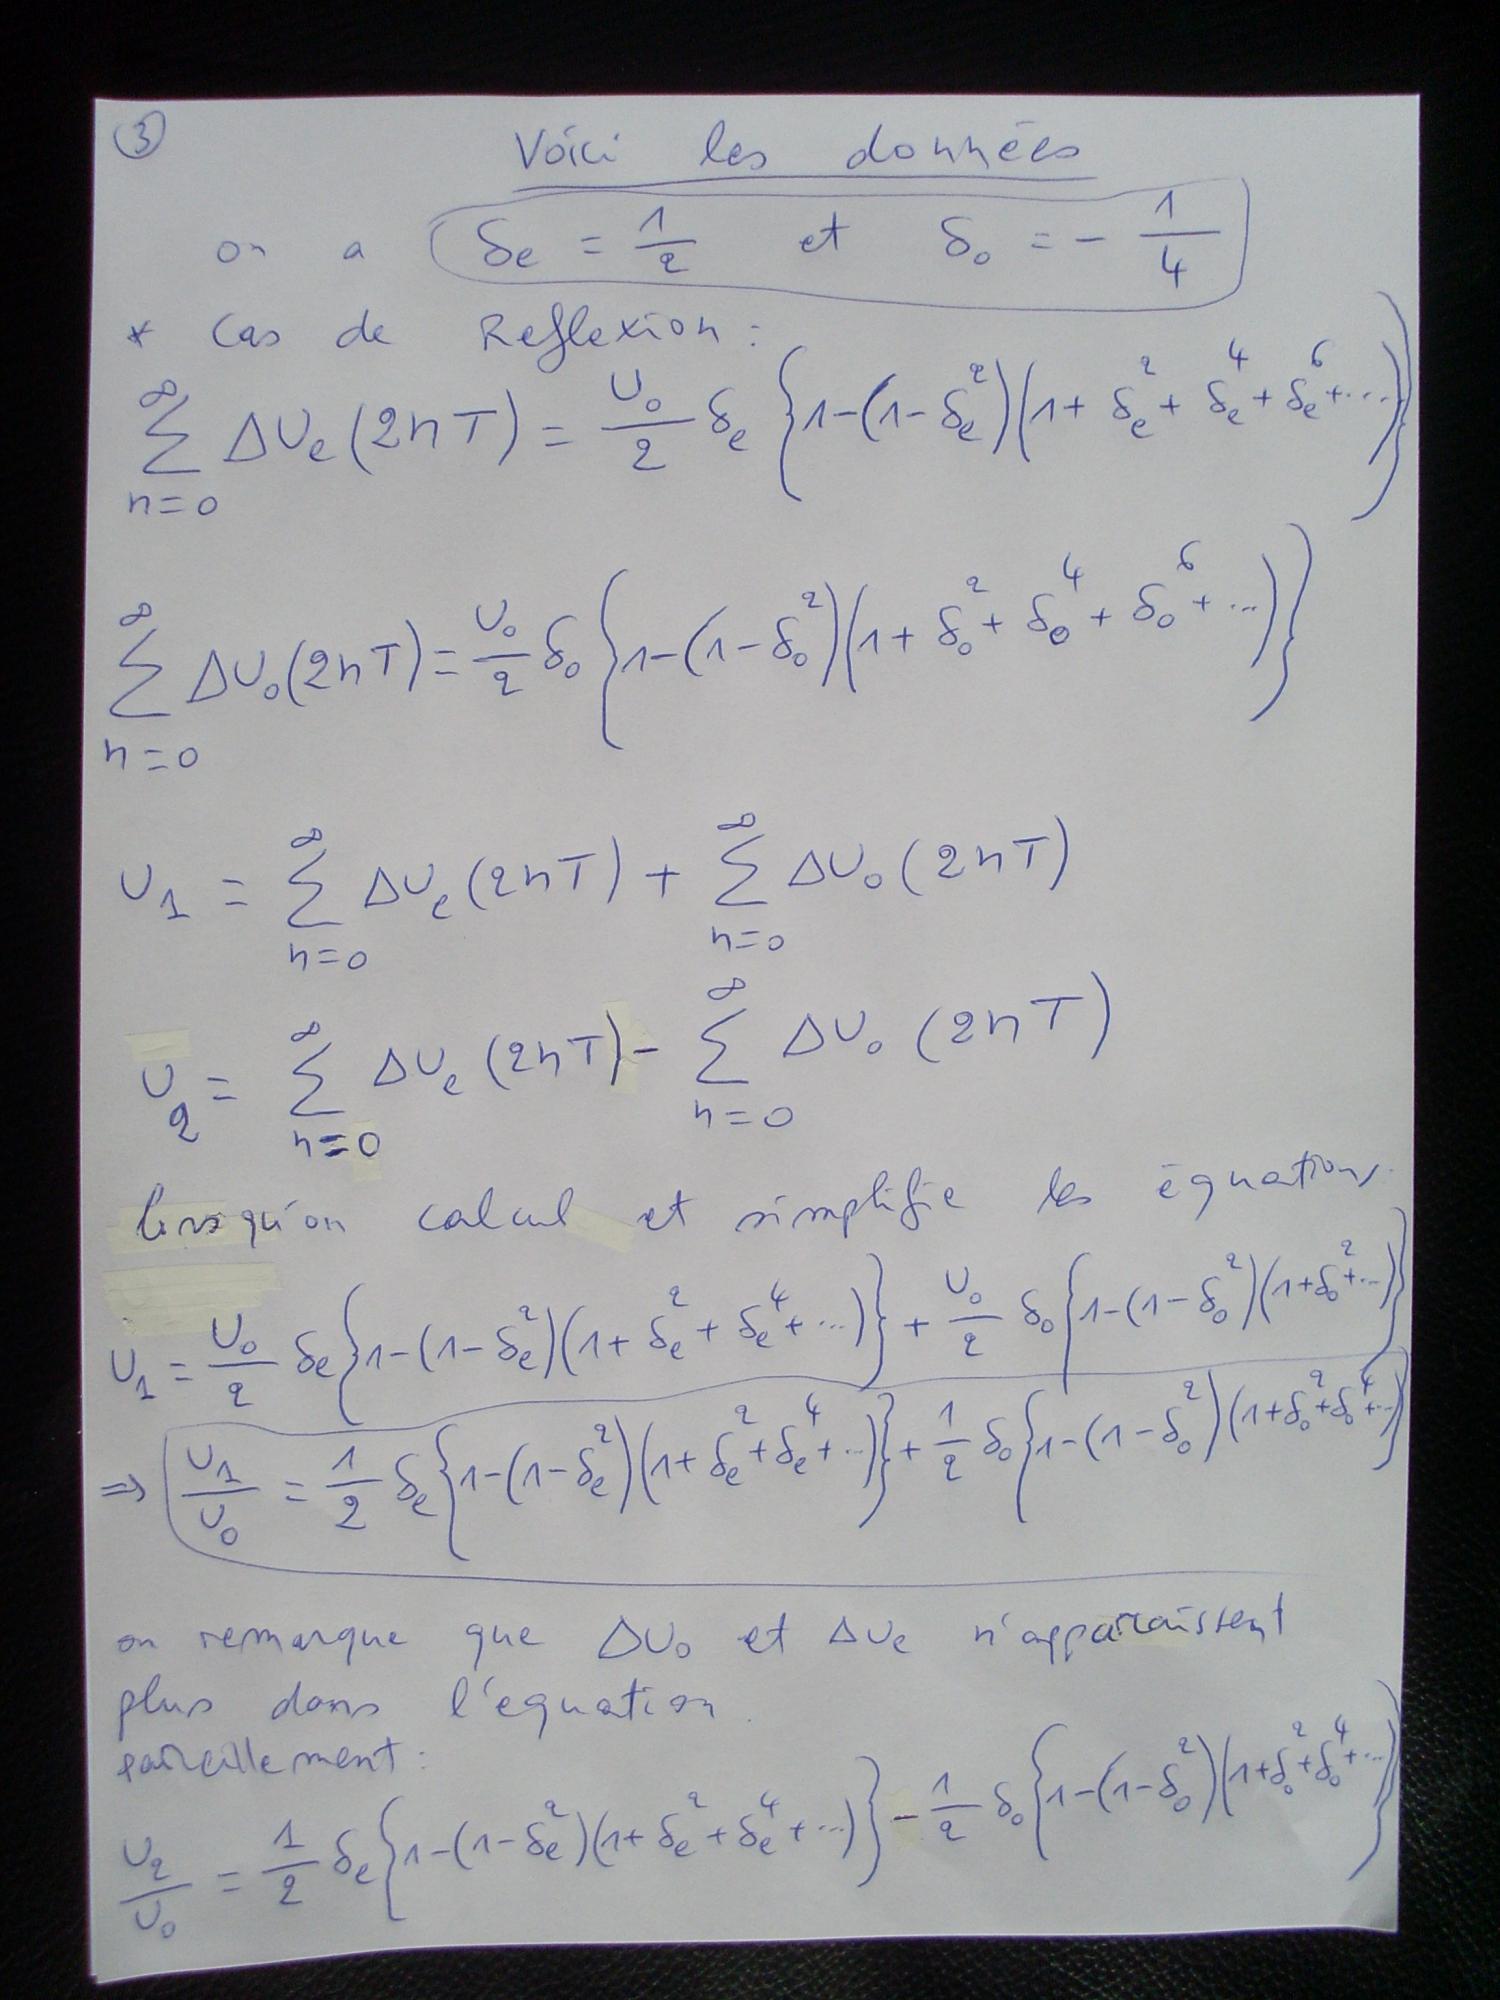 ③
Voici les données
on a δe = 1/2 et δ₀ = - 1/4
* Cas de Reflexion :
∑_{n=0}^{∞} ΔUe(2nT) = U₀/2 δe {1-(1-δe²)(1+δe²+δe⁴+δe⁶+...)}
∑_{n=0}^{∞} ΔU₀(2nT) = U₀/2 δ₀ {1-(1-δ₀²)(1+δ₀²+δ₀⁴+δ₀⁶+...)}
U₁ = ∑_{n=0}^{∞} ΔUe(2nT) + ∑_{n=0}^{∞} ΔU₀(2nT)
U₂ = ∑_{n=0}^{∞} ΔUe(2nT) - ∑_{n=0}^{∞} ΔU₀(2nT)
lorsqu'on calcul et simplifie les équations.
U₁ = U₀/2 δe {1-(1-δe²)(1+δe²+δe⁴+...)} + U₀/2 δ₀ {1-(1-δ₀²)(1+δ₀²+...)}
⇒ U₁/U₀ = 1/2 δe {1-(1-δe²)(1+δe²+δe⁴+...)} + 1/2 δ₀ {1-(1-δ₀²)(1+δ₀²+δ₀⁴+...)}
on remarque que ΔU₀ et ΔUe n'apparaissent
plus dans l'equation.
pareillement :
U₂/U₀ = 1/2 δe {1-(1-δe²)(1+δe²+δe⁴+...)} - 1/2 δ₀ {1-(1-δ₀²)(1+δ₀²+δ₀⁴+...)}